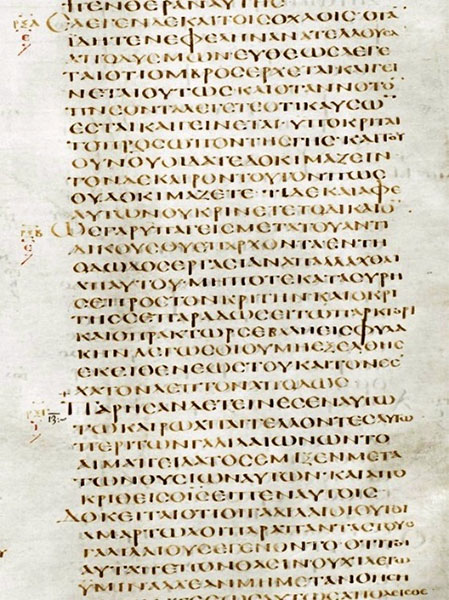 ΗΓΕΝΘΕΡΑΝΑΥΤΗΣ
ϹΛΕΓΕΝΔΕΚΑΙΤΟΙϹΟΧΛΟΙϹΟΤᾹ
ΙΔΗΤΕΝΕΦΕΛΗΝΑΝΑΤΕΛΛΟΥϹΑ
ΑΠΟΔΥϹΜΩΝΕΥΘΕΩϹΛΕΓΕ
ΤΑΙΟΤΙΟΜΒΡΟϹΕΡΧΕΤΑΙΚΑΙΓΕΙ
ΝΕΤΑΙΟΥΤΩϹΚΑΙΟΤΑΝΝΟΤΟ
ΠΝΕΟΝΤΑΛΕΓΕΤΕΟΤΙΚΑΥϹΩ
ΕϹΤΑΙΚΑΙΓΕΙΝΕΤΑΙ·ΥΠΟΚΡΙΤΑΙ
ΤΟΠΡΟϹΩΠΟΝΤΗϹΓΗϹΚΑΙΤΟΥ
ΟΥΝΟΥΟΙΔΑΤΕΔΟΚΙΜΑΖΕΙΝ
ΤΟΝΔΕΚΑΙΡΟΝΤΟΥΤΟΝΠΩϹ
ΟΥΔΟΚΙΜΑΖΕΤΕ·ΤΙΔΕΚΑΙΑΦΕ
ΑΥΤΩΝΟΥΚΡΙΝΕΤΕΤΟΔΙΚΑΙΟ
ΩϹΓΑΡΥΠΑΓΕΙϹΜΕΤΑΤΟΥΑΝΤΙ
ΔΙΚΟΥϹΟΥΕΠΑΡΧΟΝΤΑΕΝΤΗ
ΟΔΩΔΟϹΕΡΓΑϹΙΑΝΑΠΑΛΛΑΧΘΑΙ
ΑΠΑΥΤΟΥ·ΜΗΠΟΤΕΚΑΤΑϹΥΡΗ
ϹΕΠΡΟϹΤΟΝΚΡΙΤΗΝΚΑΙΟΚΡΙ
ΤΗϹϹΕΠΑΡΑΔΩϹΕΙΤΩΠΡΑΚΤΟΡΙ
ΚΑΙΟΠΡΑΚΤΩΡϹΕΒΑΛΗΕΙϹΦΥΛΑ
ΚΗΝΛΕΓΩϹΟΙΟΥΜΗΕΞΕΛΘΗϹ
ΕΚΕΙΘΕΝΕΩϹΤΟΥΚΑΙΤΟΝΕϹ
ΧΑΤΟΝΛΕΠΤΟΝΑΠΟΔΩϹ
ΠΑΡΗϹΑΝΔΕΤΙΝΕϹΕΝΑΥΤΩ
ΤΩΚΑΙΡΩΑΠΑΓΓΕΛΟΝΤΕϹΑΥΤΩ
ΠΕΡΙΤΩΝΓΑΛΙΛΑΙΩΝΩΝΤΟ
ΑΙΜΑΠΕΙΛΑΤΟϹΕΜΙΞΕΝΜΕΤΑ
ΤΩΝΘΥϹΙΩΝΑΥΤΩΝΚΑΙΑΠΟ
ΚΡΙΘΕΙϹΟΙϹΕΙΠΕΝΑΥΤΟΙϹ
ΔΟΚΕΙΤΑΙΟΤΙΟΙΓΑΛΙΛΑΙΟΙΟΥΤΟΙ
ΑΜΑΡΤΩΛΟΙΠΑΡΑΠΑΝΤΑϹΤΟΥϹ
ΓΑΛΙΛΑΙΟΥϹΕΓΕΝΟΝΤΟ·ΟΤΙΤΑ
ΑΥΤΑΠΕΠΟΝΘΑϹΙΝΟΥΧΙΛΕΓΩ
ΫΜΙΝΑΛΛΕΑΝΜΗΜΕΤΑΝΟΗϹΗ